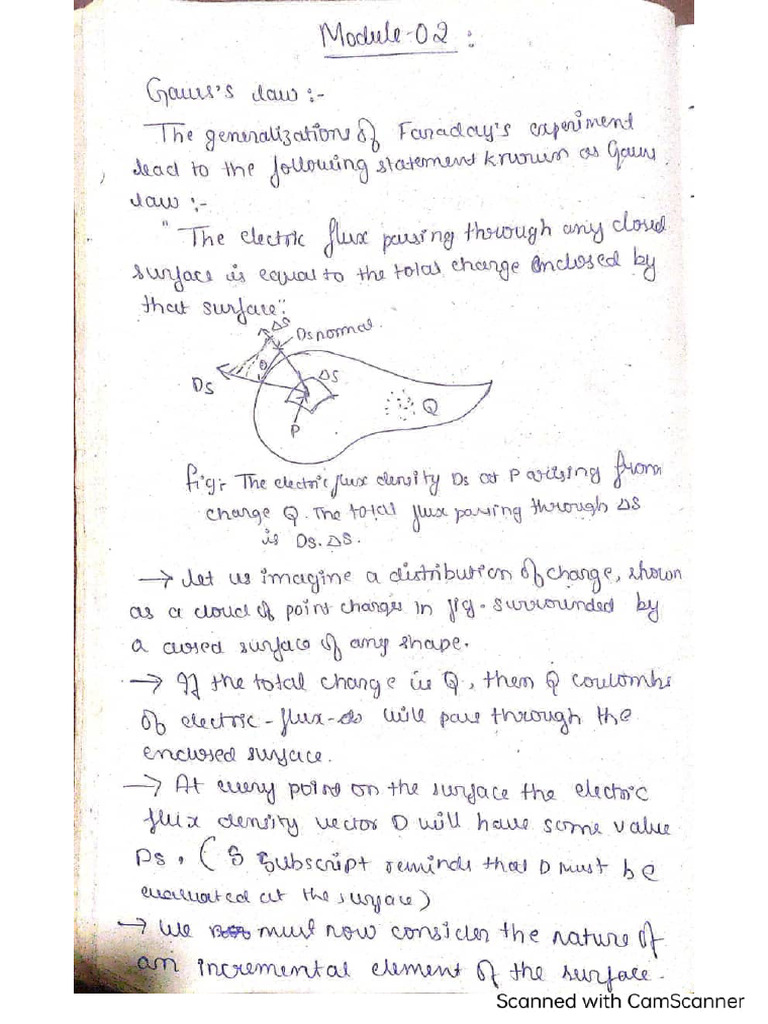 Module-02 :
Gauss's Law :-
The generalizations of Faraday's experiment
lead to the following statement known as Gauss
Law :-
"The electric flux passing through any closed
surface is equal to the total charge enclosed by
that surface".
ΔS
Ds normal.
θ
Ds
ΔS
Q
P
fig:- The electric flux density Ds at P arising from
charge Q. The total flux passing through ΔS
is Ds.ΔS.
→ Let us imagine a distribution of charge, shown
as a cloud of point charges in fig. surrounded by
a closed surface of any shape.
→ If the total charge is Q, then Q coulombs
of electric-flux-ds will pass through the
enclosed surface.
→ At every point on the surface the electric
flux density vector D will have some value
Ds. (S Subscript reminds that D must be
evaluated at the surface)
→ We must now consider the nature of
an incremental element of the surface.
Scanned with CamScanner